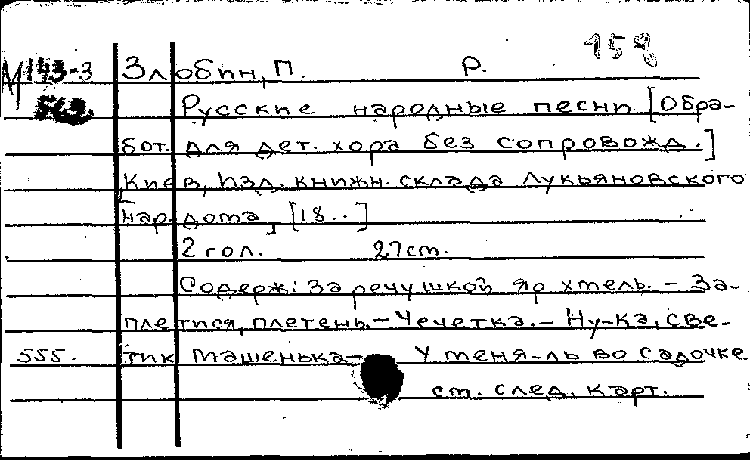 158
М143-3 Злобин, П. Р.
Русские народные песни [Обра-
бот. для дет. хора без сопровожд.]
Киев, Изд. книжн. склада Лукьяновского
нар. дома, [18..]
2 гол. 27 ст.
Содерж: За речушкой яр хмель. – За-
плетися, плетень. – Чечетка. – Ну-ка, све-
555. тик Машенька – У меня-ль во садочке
см. след. карт.